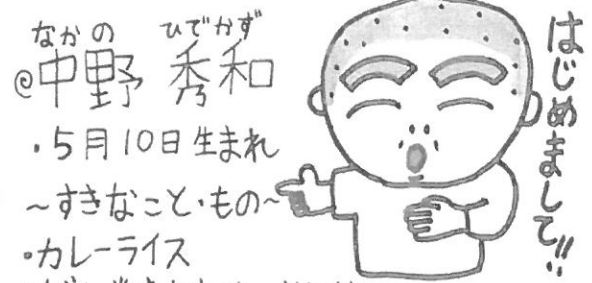 なかの ひでかず
@中野 秀和
・5月10日生まれ
~すきなこと・もの~
・カレーライス
はじめまして!!